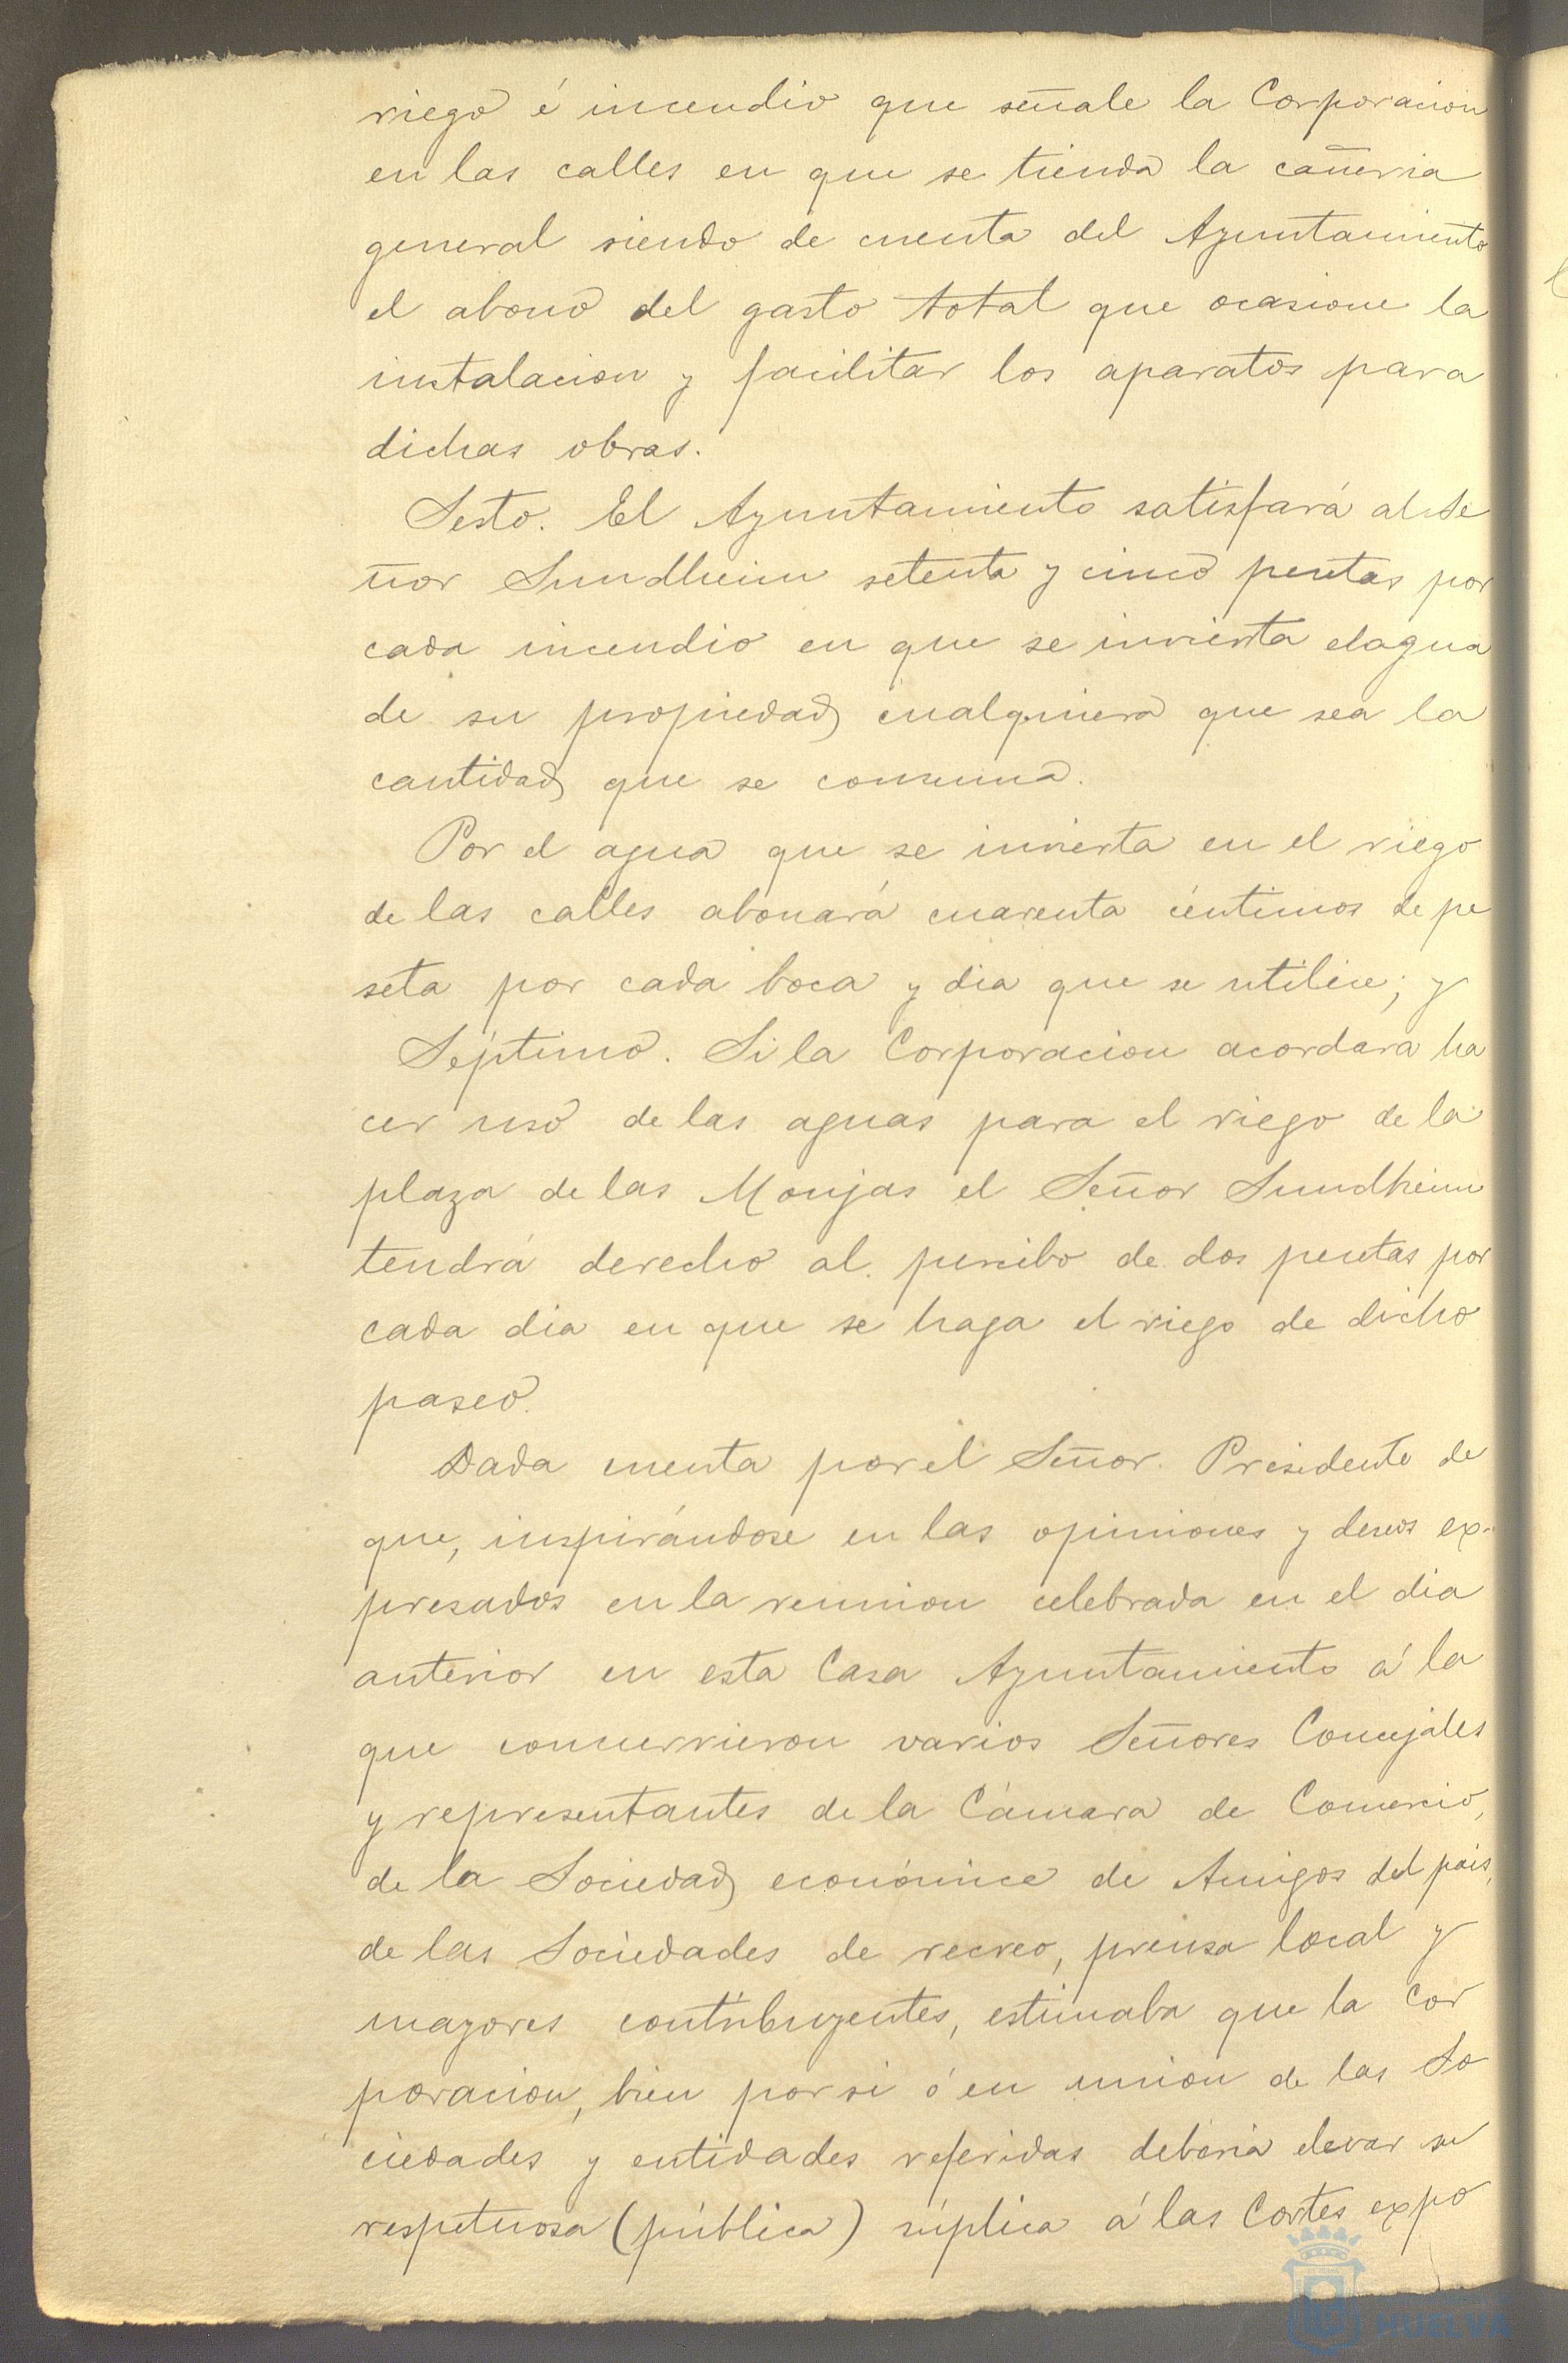 riego é incendio que señale la Corporacion
en las calles en que se tienda la cañeria
general siendo de cuenta del Ayuntamiento
el abono del gasto total que ocasione la
instalacion y facilitar los aparatos para
dichas obras.
Sesto. El Ayuntamiento satisfará al Se
ñor Sundheim setenta y cinco pesetas por
cada incendio en que se invierta el agua
de su propiedad cualquiera que sea la
cantidad que se consuma.
Por el agua que se invierta en el riego
de las calles abonará cuarenta céntimos de pe
seta por cada boca y dia que se utilice; y
Séptimo. Si la Corporacion acordara ha
cer uso de las aguas para el riego de la
plaza de las Monjas el Señor Sundheim
tendrá derecho al percibo de dos pesetas por
cada dia en que se haga el riego de dicho
paseo.
Dada cuenta por el Señor Presidente de
que, inspirándose en las opiniones y deseos ex-
presados en la reunion celebrada en el dia
anterior en esta Casa Ayuntamiento á la
que concurrieron varios Señores Concejales
y representantes de la Cámara de Comercio,
de la Sociedad económica de Amigos del pais,
de las Sociedades de recreo, prensa local y
mayores contribuyentes, estimaba que la Cor
poracion, bien por si ó en union de las So
ciedades y entidades referidas deberia elevar su
respetuosa (pública) súplica á las Cortes expo
HUELVA